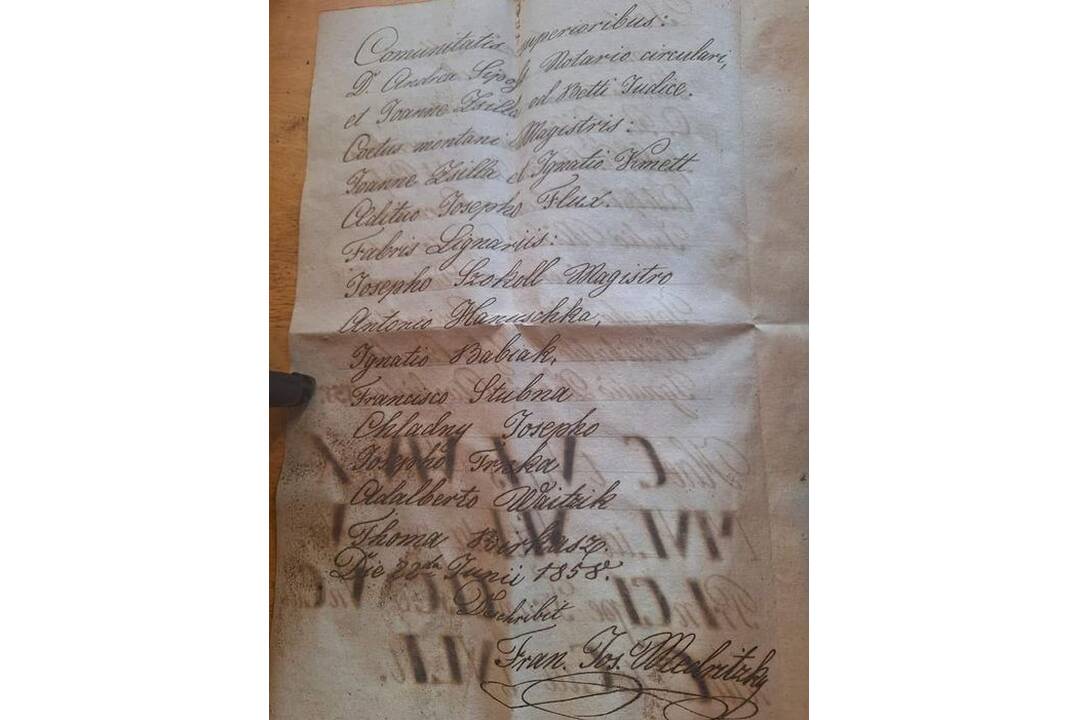 Comunitatis superioribus:
Dno Andrea Sipos Notario circulari,
et Joanne Zsilla ed Betti Judice.
Coetus montani Magistris:
Joanne Zsilla et Ignatio Kmett
Aditus Josepho Flux.
Fabris Lignariis:
Josepho Szokoll Magistro
Antonio Hanuschka,
Ignatio Babiak,
Francisco Stubna
Chladny Josepho
Josepho Trnka
Adalberto Waitzik
Thoma Birkasz.
Die 22da Junii 1858.
Deschribit
Fran. Jos.